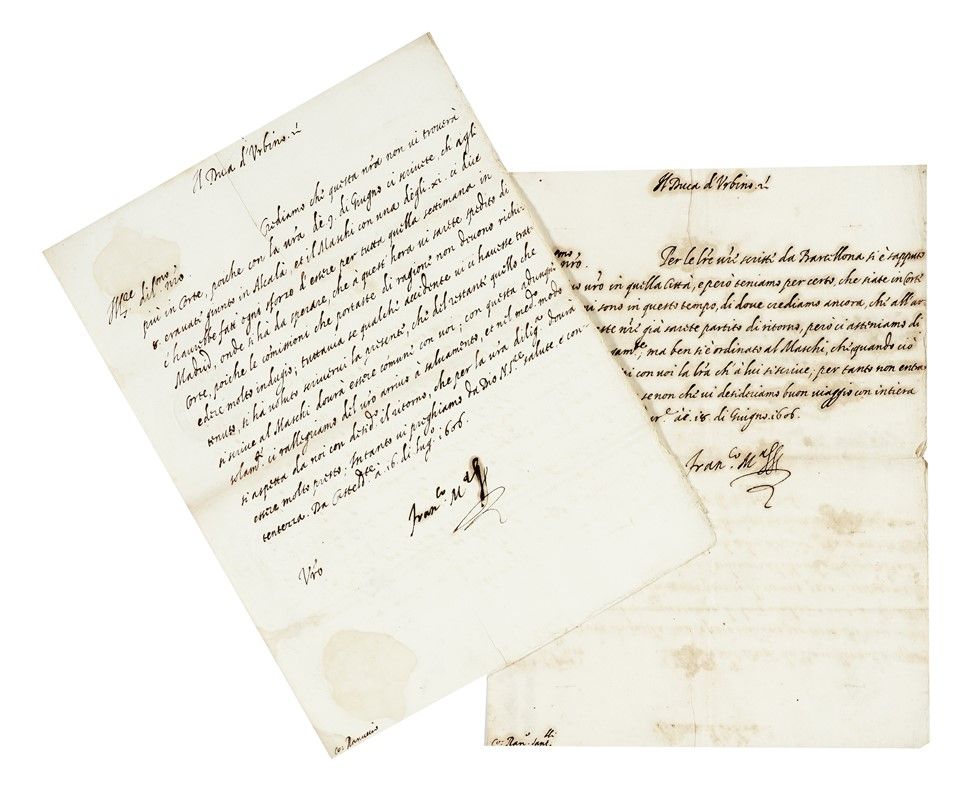 Il Duca d'Urbino.
Crediamo che questa nr̃a non vi trovarà
più in Corte, poiche con la vr̃a de 9. di Giugno ci scrivete, ch'agli
8. eravate giunto in Alcalà, et il Maschi con una degli .xi. ci dice
c'havreste fati ogni sforzo d'essere per tutta quella settimana in
Madrid, onde si hà da sperare, che à quest'hora vi sarete spedito di
Corte, poiche le comissioni che portaste di ragione non devono richi-
edere molto indugio, tuttavia se qualche accidente vi ci havesse trat-
tenuto, si hà voluto scrivervi la presente, che del restanti quello che
si scrive al Maschi dovrà essere comune con voi; con questa adunq;
solam.te ci rallegriamo del vr̃o arrivo à salvamento, et nel med.mo modo
si aspetta da noi con desid.o il ritorno, che per la vr̃a dilig.a dovrà
essere molto presto. Intanto vi preghiamo da Dio N.S. salute e con-
tentezza. Da Casteld.te à 16. di lug.o 1606.
Fran.co M.a
Vr̃o
Co: Ranuccio
Il Duca d'Urbino.
Per le lr̃e vr̃e scritte da Barcellona si è saputo
vr̃o in quella Città, e però teniamo per certo, che siate in Corte
vi sono in questo tempo, di dove crediamo ancora, che all'ar-
este nr̃e già sarete partito di ritorno, però ci asteniamo di
gam.te; ma ben si è ordinato al Maschi, che quando ciò
con voi la lr̃a ch'à lui si scrive; per tanto non entra
senon che vi desideriamo buon viaggio con intiera
18. di Giugno. 1606.
Fran.co M.a
Co: Ran.o